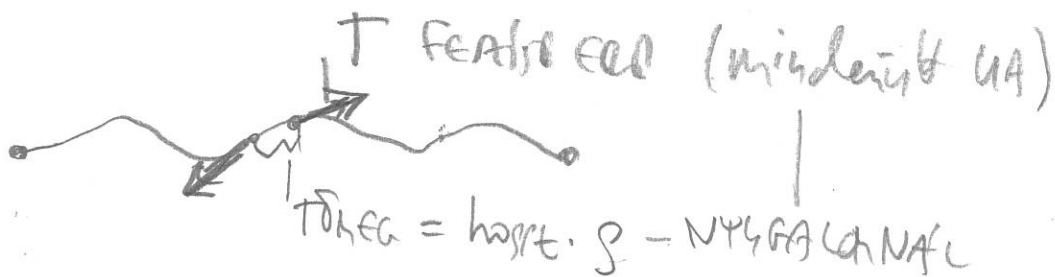 T FESZÍTŐ ERŐ (mindenütt UA)
TÖMEG = hossz. ρ - NYUGALOMNÁL